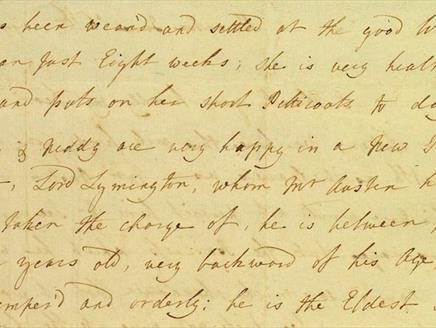 s been wean'd and settled at the good W
an just Eight weeks; she is very health
and puts on her short Petticoats to day
& Neddy are very happy in a New
Lord Lymington, whom Mr Austen h
taken the charge of, he is between
years old, very backward of his Age
temper'd and orderly; he is the Eldest